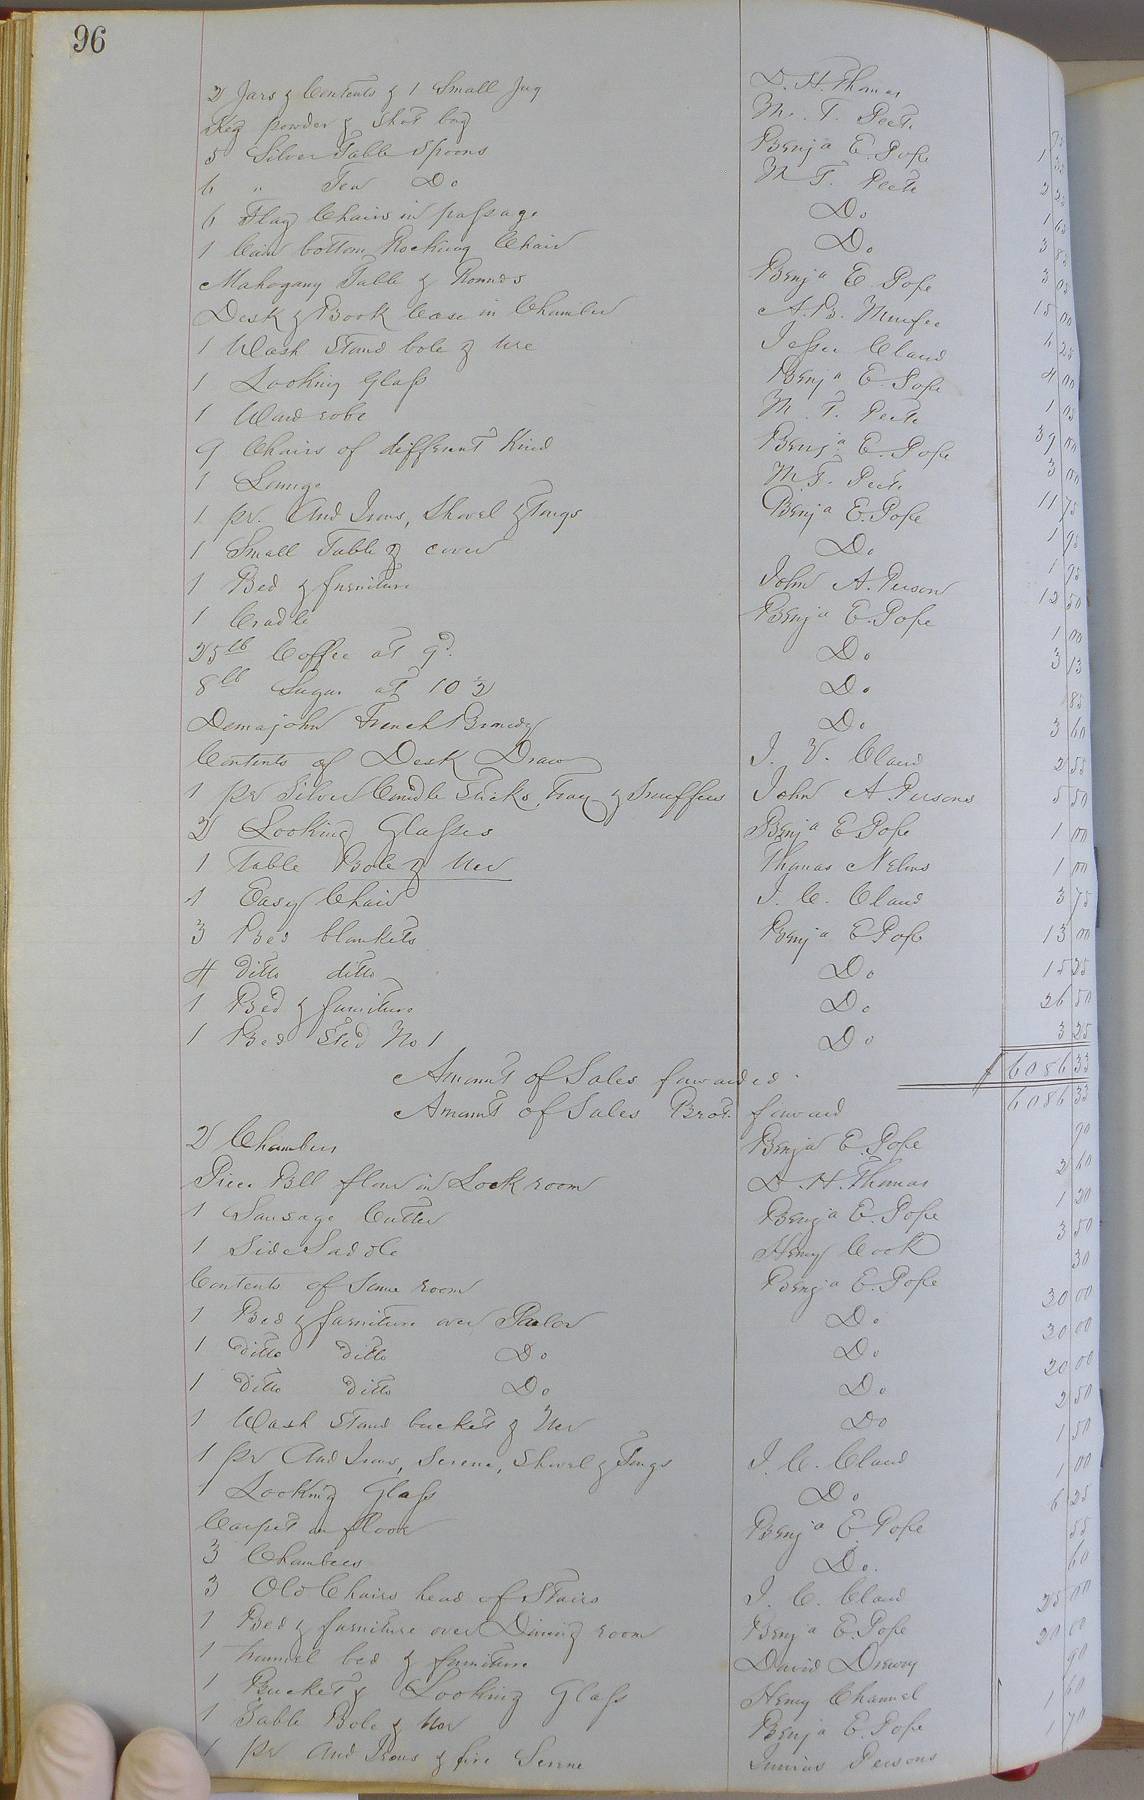 96
2 Jars & Contents & 1 Small Jug D. H. Thomas
Keg powder & Shot bag M. T. Peete
5 Silver Table Spoons Benja E. Pope
6 " Tea Do M T. Peete
6 Flag Chairs in passage Do
1 Cain bottom Rocking Chair Do
Mahogany Table & Rounds Benja E. Pope 3 05
Desk & Book Case in Chamber A. B. 15 00
1 Wash Stand bole & Ure Jesse Claud 6 25
1 Looking Glass Benja E. Pope 4 00
1 Wardrobe M. T. Peete 1 05
9 Chairs of different Kind Benja E. Pope 39 00
1 Lounge M T. Peete 3 00
1 pr. And Irons, Shovel & Tongs Benja E. Pope 11 75
1 Small Table & cover Do 1 95
1 Bed & furniture John A. Person 12 50
1 Cradle Benja E. Pope 1 00
25 lb Coffee at 9d. Do 3 13
8 lb Sugar at 10 2 Do 85
Demajohn French Brandy Do 3 60
Contents of Desk Draw J. V. Claud 2 55
1 pr Silver Candle Sticks, Tray & Snuffers John A. Persons 5 50
2 Looking Glasses Benja E Pope 1 00
1 Table Bole & Uer Thomas Nelms 1 00
1 Easy Chair J. C. Claud 3 75
3 Bed blankets Benja E Pope 13 00
4 Ditto ditto Do 15 25
1 Bed & furniture Do 26 50
1 Bed Sted No 1 Do 3 25
Amount of Sales forwarded 6086 33
Amount of Sales Brot. forward 6086 33
2 Chambers Benja E. Pope 90
Piece Bll flour in Lock room D. H. Thomas 2 60
1 Sausage Cutter Benja E. Pope 1 20
1 Side Saddle Henry Cook 3 50
Contents of Same room Benja E. Pope 30
1 Bed & furniture over Parlor Do 30 00
1 Ditto Ditto Do Do 30 00
1 Ditto Ditto Do Do 20 00
1 Wash Stand bucket & Uer Do 2 50
1 pr And Irons, Screne, Shovel & Tongs J. C. Claud 1 50
1 Looking Glass Do 1 00
Carpet on floor Benja E. Pope 6 25
3 Chambers Do. 55
3 Old Chairs head of Stairs J. C. Claud 60
1 Bed & furniture over Dining room Benja E. Pope 25 00
1 trunnel bed & furniture David Drewry 20 00
1 Bucket & Looking Glass Henry Channel 90
1 Table Bole & Uer Benja E. Pope 1 60
1 pr And Irons & fire Serene Junius Persons 1 70